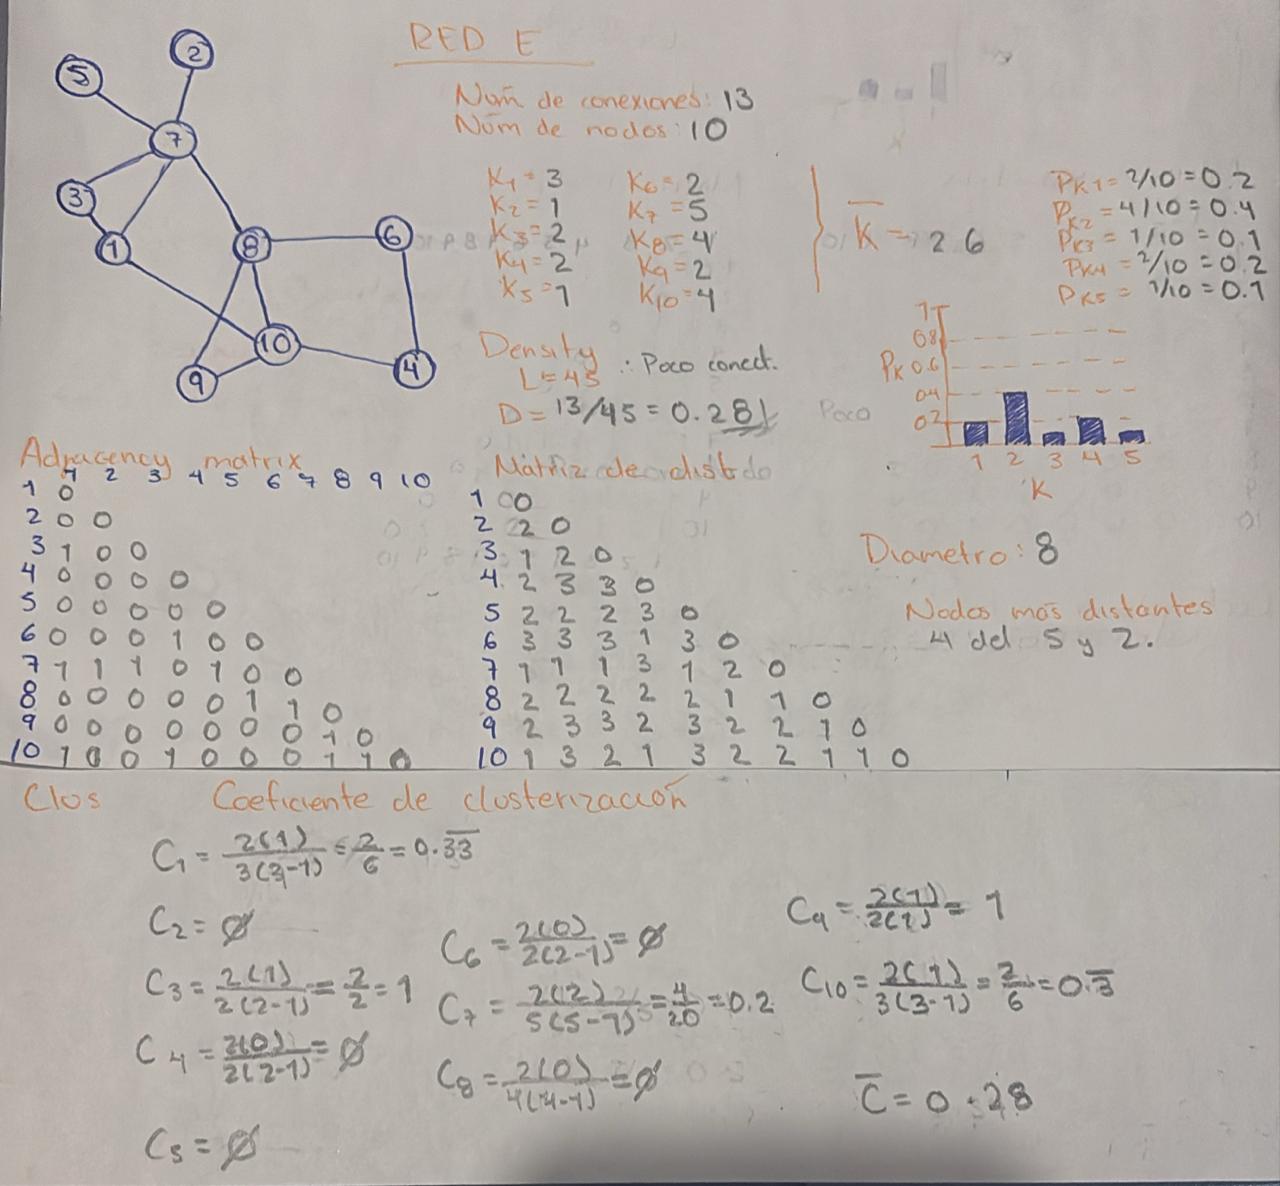 RED E
Num de conexiones: 13
Núm de nodos: 10
5
2
7
3
1
8
6
10
9
4
K1 = 3
K2 = 1
K3 = 2
K4 = 2
K5 = 1
K6 = 2
K7 = 5
K8 = 4
K9 = 2
K10 = 4
K = 2 6
PK1 = 2/10 = 0.2
PK2 = 4/10 = 0.4
PK3 = 1/10 = 0.1
PK4 = 2/10 = 0.2
PK5 = 1/10 = 0.1
Density ∴ Poco conect.
L = 45
D = 13/45 = 0.281
Poco
1
0.8
PK 0.6
0.4
0.2
1 2 3 4 5
K
Adjacency matrix
1 2 3 4 5 6 7 8 9 10
1 0
2 0 0
3 1 0 0
4 0 0 0 0
5 0 0 0 0 0
6 0 0 0 1 0 0
7 1 1 1 0 1 0 0
8 0 0 0 0 0 1 1 0
9 0 0 0 0 0 0 0 1 0
10 1 0 0 1 0 0 0 1 1 0
Matriz de dist
1 0
2 2 0
3 1 2 0
4 2 3 3 0
5 2 2 2 3 0
6 3 3 3 1 3 0
7 1 1 1 3 1 2 0
8 2 2 2 2 2 1 1 0
9 2 3 3 2 3 2 2 1 0
10 1 3 2 1 3 2 2 1 1 0
Diametro: 8
Nodos mas distantes
4 del 5 y 2.
Clus Coeficiente de clusterización
C1 = 2(1)/3(3-1) = 2/6 = 0.33
C2 = ∅
C3 = 2(1)/2(2-1) = 2/2 = 1
C4 = 2(0)/2(2-1) = ∅
C5 = ∅
C6 = 2(0)/2(2-1) = ∅
C7 = 2(2)/5(5-1) = 4/20 = 0.2
C8 = 2(0)/4(4-1) = ∅
C9 = 2(1)/2(1) = 1
C10 = 2(1)/3(3-1) = 2/6 = 0.3
C = 0.28